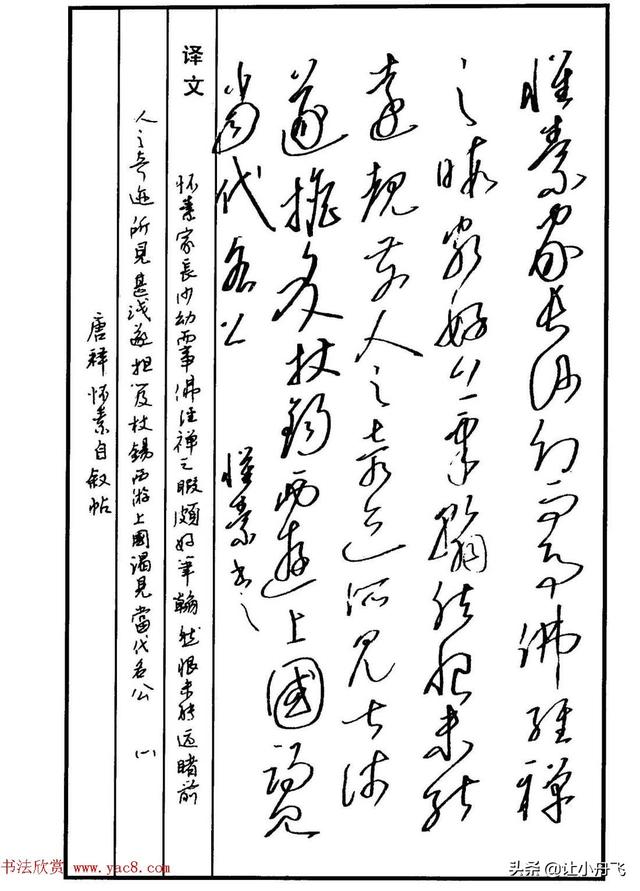 懷素家長沙幼而事佛經禪
之暇頗好筆翰然恨未能
遠覩前人之奇迹所見甚淺
遂擔笈杖錫西遊上國謁見
當代名公
懷素書之
译文
怀素家長沙幼而事佛经禅之暇頗好筆翰然恨未能远睹前
人之奇迹所見甚浅遂担笈杖锡西游上國謁見當代名公 (一)
唐释怀素自叙帖
书法欣赏 www.yac8.com
头条 @让小丹飞